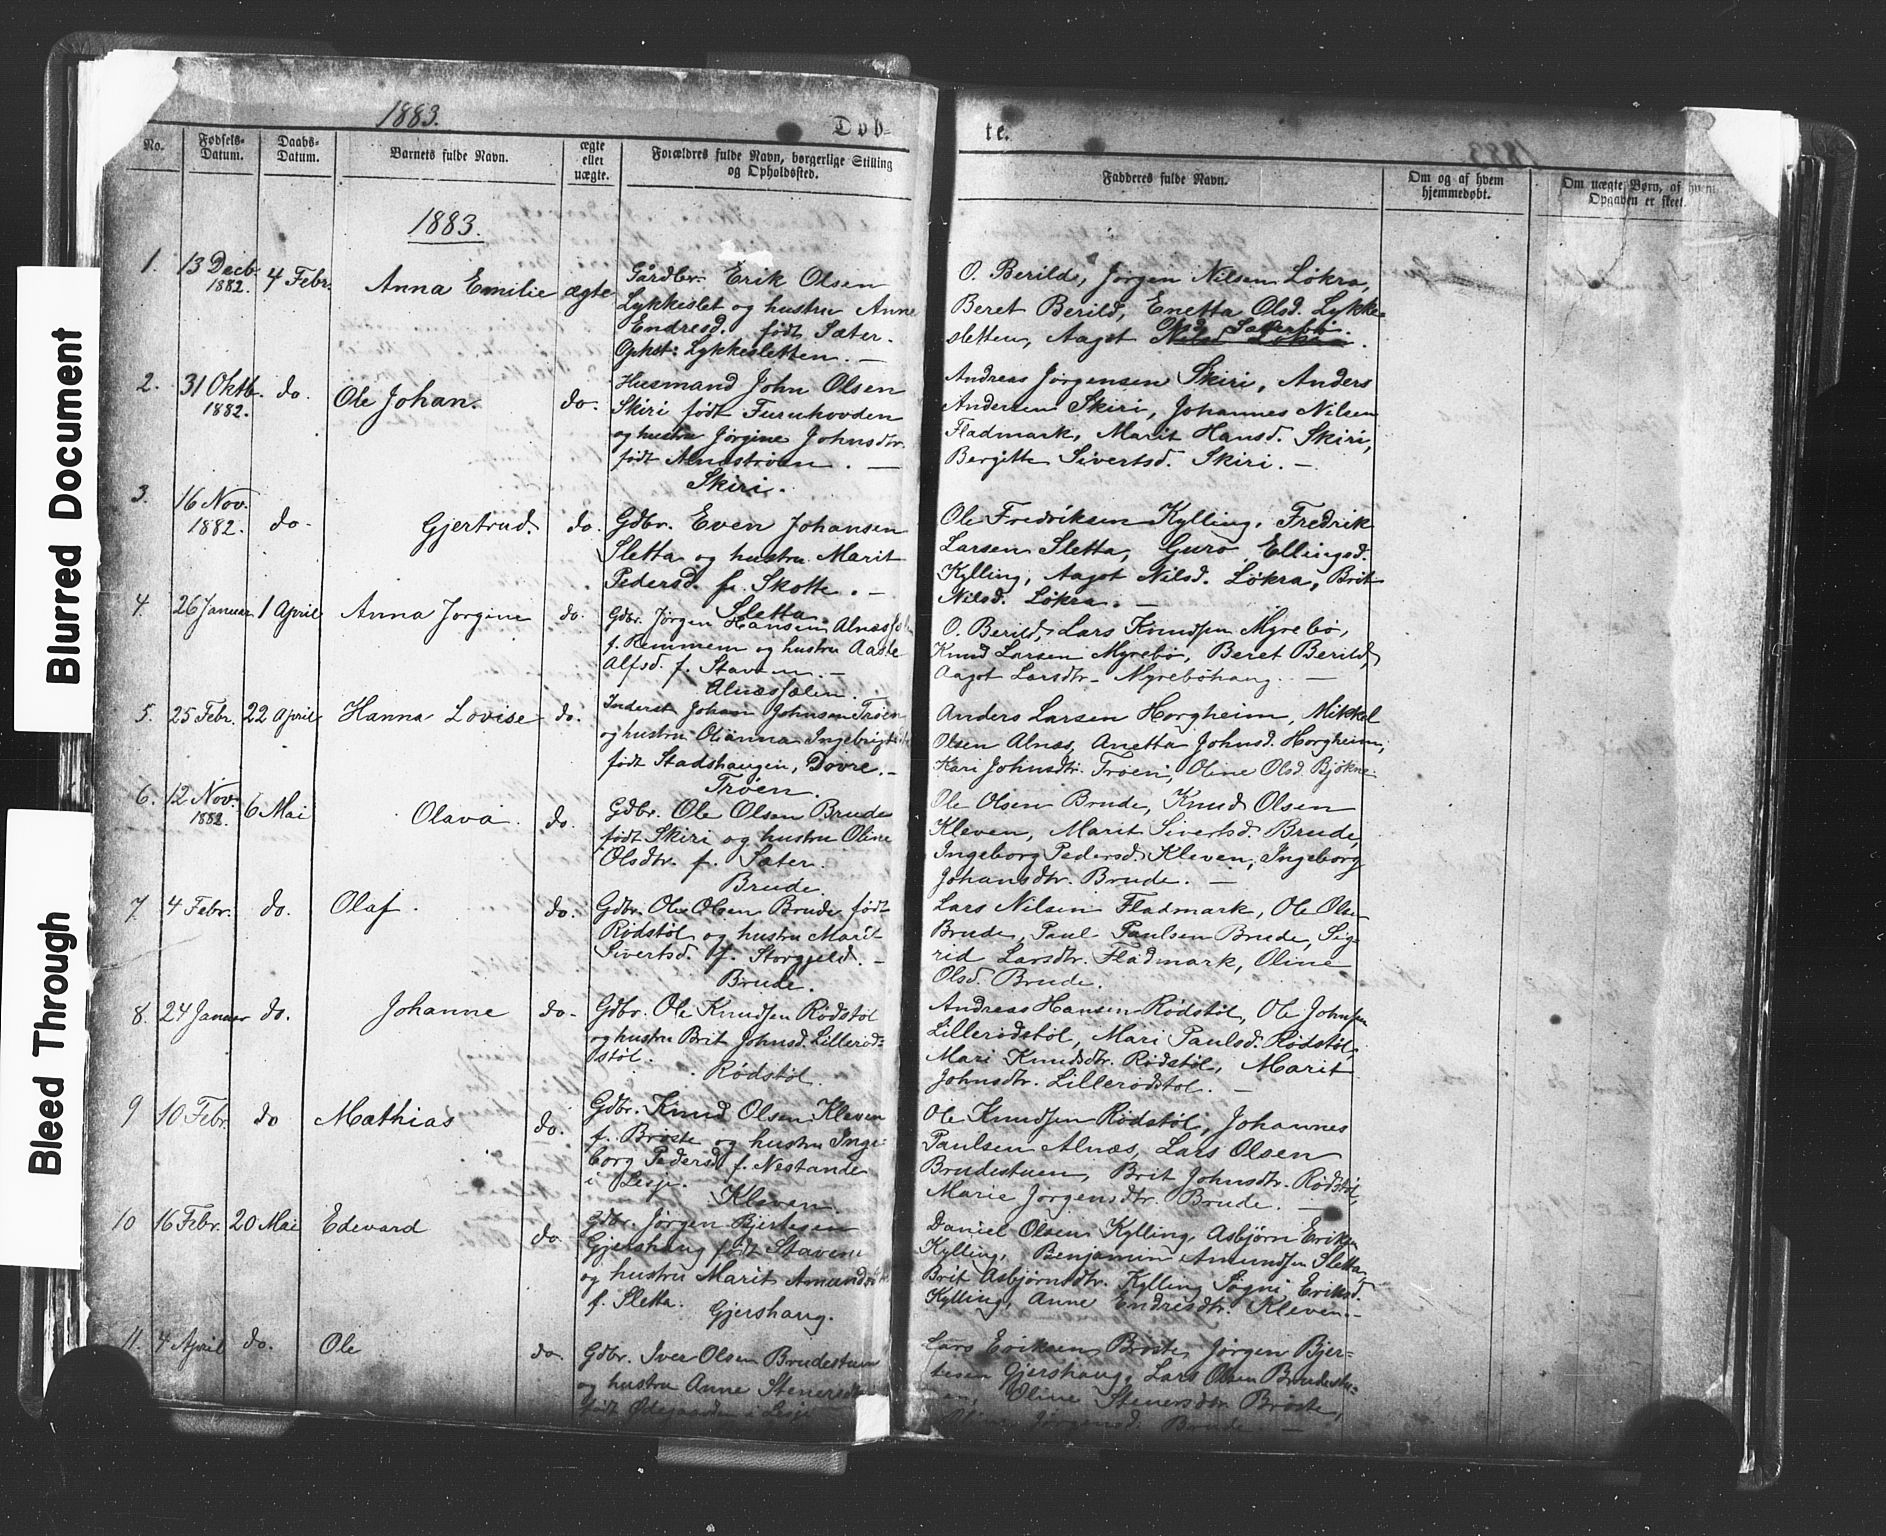 Blurred Document
Bleed Through
1883.
Døb-
te.
No.
Fødsels-
Datum.
Daabs-
Datum.
Barnets fulde Navn.
ægte
eller
uægte.
Forældres fulde Navn, borgerlige Stilling
og Opholdssted.
Fadderes fulde Navn.
Om og af hvem
hjemmedøbt.
Om uægte Børn, af hvem
Opgaven er skeet.
1883.
1. 13 Decb. 1882. 4 Febr. Anna Emilie ægte
Gårdbr. Erik Olsen
Lykkeslet og hustru Anne
Endresd. født Sæter.
Ophst: Lykkesletten. —
O. Berild, Jørgen Nilsen Løkra,
Beret Berild, Enetta Olsd. Lykke-
sletten, Aagot Nilsd Løkra.
2. 31 Oktb. 1882. do. Ole Johan. do.
Husmand John Olsen
Skiri født Furuhovden
og hustru Jørgine Johnsdtr.
født Alnæstrøen. —
Skiri.
Andreas Jørgensen Skiri, Anders
Andersen Skiri, Johannes Nilsen
Fladmark, Marit Hansd. Skiri,
Bergitte Sivertsd. Skiri. —
3. 16 Nov. 1882. do. Gjertrud. do.
Gdbr. Even Johansen
Sletta og hustru Marit
Pedersd. f. Skotte. —
Sletta.
Ole Fredriksen Kylling, Fredrik
Larsen Sletta, Guro Ellingsd.
Kylling, Aagot Nilsd. Løkra, Brit
Nilsd. Løkra. —
4. 26 Januar 1 April Anna Jørgine do.
Gdbr. Jørgen Hansen Alnæs
f. Remmem og hustru Aaste
Alfsd. f. Staven. —
Alnæssælen.
O. Berild, Lars Knudsen Myrebø,
Knud Larsen Myrebø, Beret Berild,
Aagot Larsdtr. Myrebøhaug. —
5. 25 Febr. 22 April Hanna Lovise do.
Inderst Johan Johnsen Trøen
og hustru Olianna Ingebrigtsdtr
født Stadshaugen, Dovre. —
Trøen.
Anders Larsen Horgheim, Mikkel
Olsen Alnæs, Anetta Johnsd. Horgheim,
Kari Johnsdtr. Trøen, Oline Olsd. Bjøkne.
6. 12 Nov. 1882. 6 Mai Olava do.
Gdbr. Ole Olsen Brude
født Skiri og hustru Oline
Olsdtr. f. Sæter.
Brude.
Ole Olsen Brude, Knud Olsen
Kleven, Marit Sivertsd. Brude,
Ingeborg Pedersd. Kleven, Ingeborg
Johansdtr. Brude. —
7. 4 Febr. do. Olaf. do.
Gdbr. Ole Olsen Brude født
Rødstøl og hustru Marit
Sivertsd. f. Storgjeld. —
Brude.
Lars Nilsen Fladmark, Ole Olsen
Brude, Paul Paulsen Brude, Sig-
rid Larsdtr. Fladmark, Oline
Olsd. Brude.
8. 24 Januar do. Johanne do.
Gdbr. Ole Knudsen Rødstøl
og hustru Brit Johnsd. Lillerød-
støl.
Rødstøl.
Andreas Hansen Rødstøl, Ole Johnsen
Lillerødstøl, Mari Paulsd. Rødstøl,
Mari Knudsdtr. Rødstøl, Marit
Johnsdtr. Lillerødstøl. —
9 10 Febr. do Mathias do.
Gdbr. Knud Olsen Kleven
f. Brøste og hustru Inge-
borg Pedersd f. Nestande
i Lesje.
Kleven.
Ole Knudsen Rødstøl, Johannes
Paulsen Alnæs, Lars Olsen
Brudestuen, Brit Johnsdtr. Rødstøl,
Marie Jørgensdtr. Brude. —
10 16 Febr. 20 Mai Edevard do
Gdbr. Jørgen Bjertesen
Gjershaug født Staven
og hustru Marit Amundsdtr
f. Sletta. Gjershaug.
Daniel Olsen Kylling, Asbjørn Eriksen
Kylling, Benjamin Amundsen Sletta,
Brit Asbjørnsdtr. Kylling, Søgni Eriksd.
Kylling, Anne Endresdtr. Kleven. —
11. 4 April do. Ole do
Gdbr. Iver Olsen Brudestuen
og hustru Anne Stenersdtr
født Ødegaarden i Lesje
Lars Eriksen Brøste, Jørgen Bjer-
tesen Gjershaug, Lars Olsen Brudestu-
en, Oline Stenersdtr Brøste,
Jørgensd. Brude. —